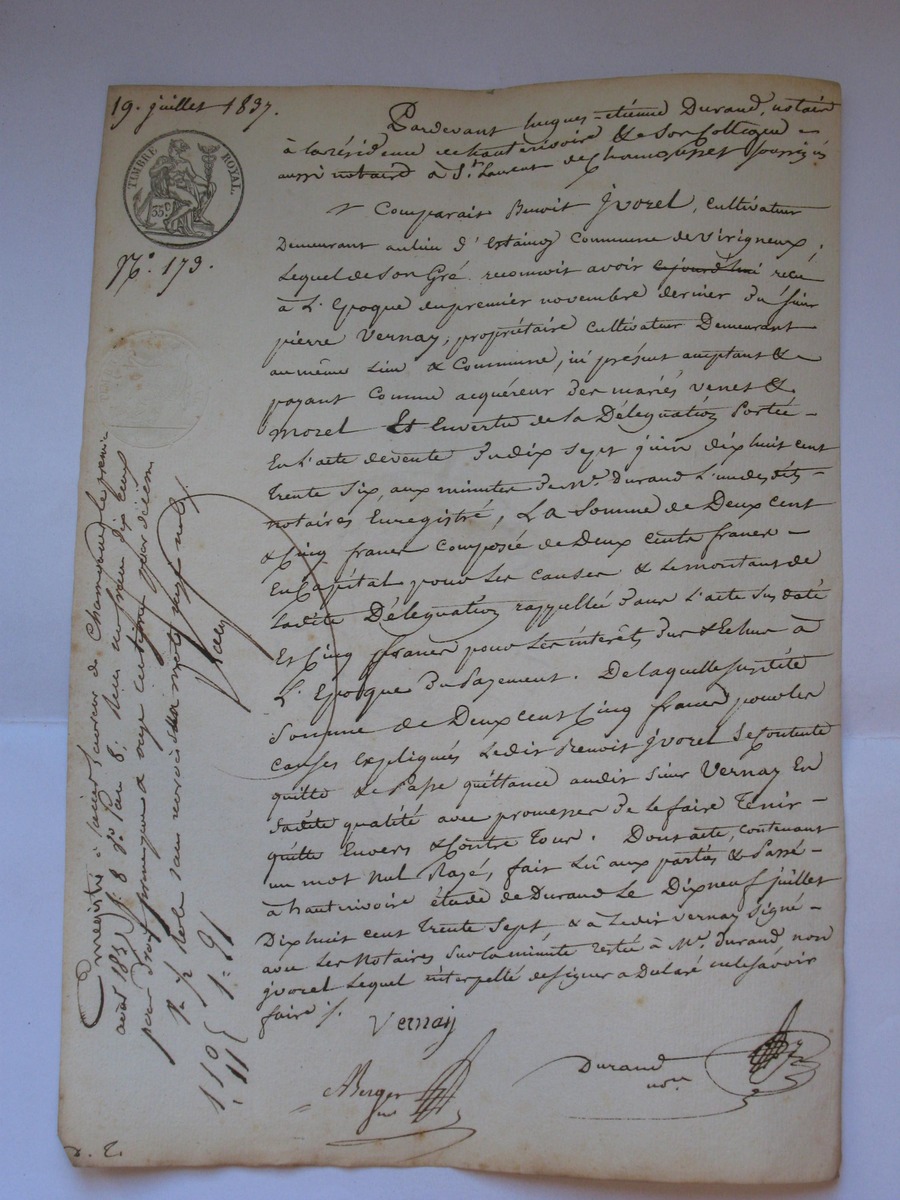 19. juillet 1837.
TIMBRE ROYAL.
35 c
N.° 173.
Pardevant hugues-étienne Durand, notaire
à la résidence de hauterivoire & de son Collègue
aussi notaire à St. Laurent de Chamousset soussignés
Comparait Benoit jvorel, Cultivateur
Demeurant au lieu d'Estaimoz Commune de Virigneux,
Lequel de Son Gré reconnoit avoir cejourd'hui recu
à L'Epoque du premier novembre dernier du Sieur
pierre Vernay, propriétaire Cultivateur Demeurant
au même Lieu & Commune, ici présent acceptant &
payant Comme acquéreur des mariés venet &
morel Et En vertu de la Délégation Portée
En L'acte de vente du dix Sept juin dix huit cent
trente Six, aux minutes de Me. Durand L'un des dits
notaires Enregistré, La Somme de Deux cent
Cinq francs Composée de Deux cents francs
En Capital pour Les Causes & Le montant de
Ladite Délégation rappellée dans L'acte Sus daté
Et Cinq francs pour Les intérêts dus & Echus à
L'Epoque du Payement. De laquelle Susdite
Somme de Deux cent Cinq francs pour les
Causes Expliqués Ledit Benoit jvorel Se Contente
quitte & Passe quittance audit Sieur Vernay En
Sadite qualité avec promesses de le faire Tenir
quitte Envers & Contre Tous. Dont acte, contenant
un mot Nul Rayé, fait Lu aux parties & Passé
à hauterivoire étude de Durand Le Dix neuf juillet
Dix huit cent Trente Sept & à Ledit Vernay Signé
avec Les Notaires Sur la minute restée à Me. Durand non
jvorel Lequel interpellé de signer a Déclaré ne le Savoir
faire ./.
Vernay
Berger
Durand
nore
Enregistré à
août 1837 f. 8
1=91
110
11